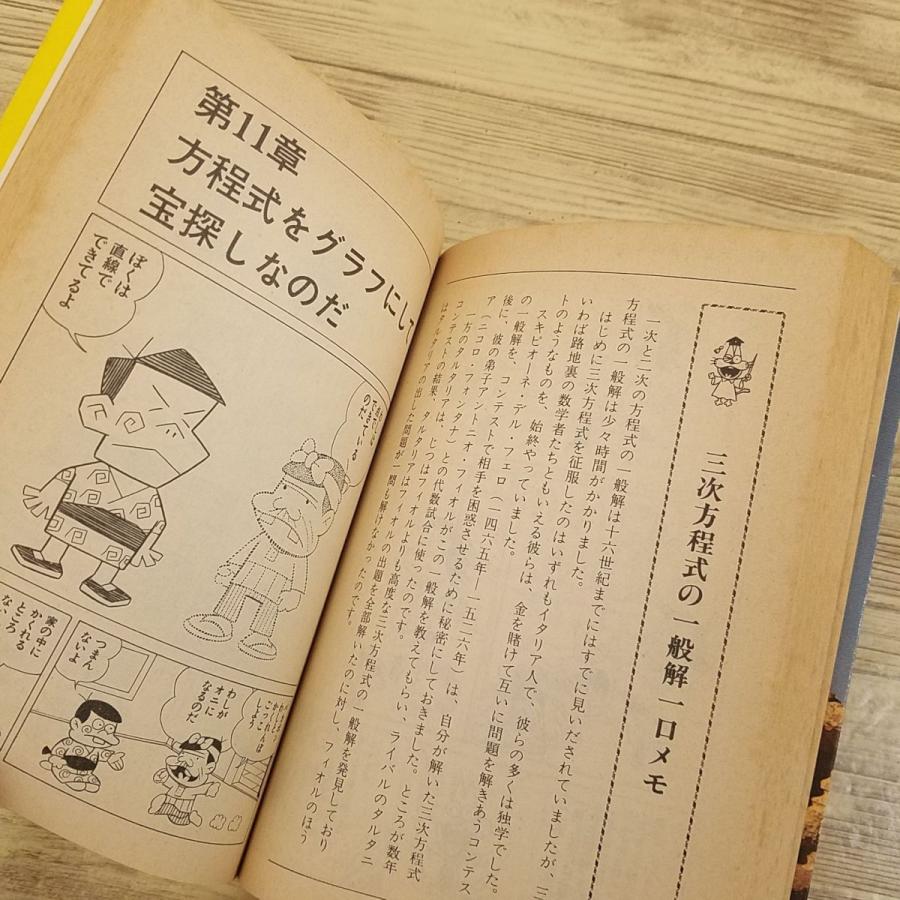 三次方程式の一般解一口メモ
一次と二次の方程式の一般解は十六世紀までにはすでに見いだされていましたが、三
方程式の一般解は少々時間がかかりました。
はじめに三次方程式を征服したのはいずれもイタリア人で、彼らの多くは独学でした。
いわば路地裏の数学者たちともいえる彼らは、金を賭けて互いに問題を解きあうコンテス
トのようなものを、始終やっていました。
スキピオーネ・デル・フェロ（一四六五年―一五二六年）は、自分が解いた三次方程式
の一般解を、コンテストで相手を困惑させるために秘密にしておきました。ところが数年
後に、彼の弟子アントニオ・フィオルがこの一般解を教えてもらい、ライバルのタルタリ
ア（ニコロ・フォンタナ）との代数試合に使ったのです。
一方のタルタリアは、じつはフィオルよりも高度な三次方程式の一般解を発見しており
コンテストの結果、タルタリアはフィオルの出題を全部解いたのに対し、フィオルのほう
はタルタリアの出した問題が一問も解けなかったのです。
第11章
方程式をグラフにして
宝探しなのだ
できている
のだ
ぼくは
直線で
できてるよ
かくれ
ごっこ
しよう
わしが
オニに
なるのだ
つまん
ないよ
家の中に
かくれる
ところ
ない